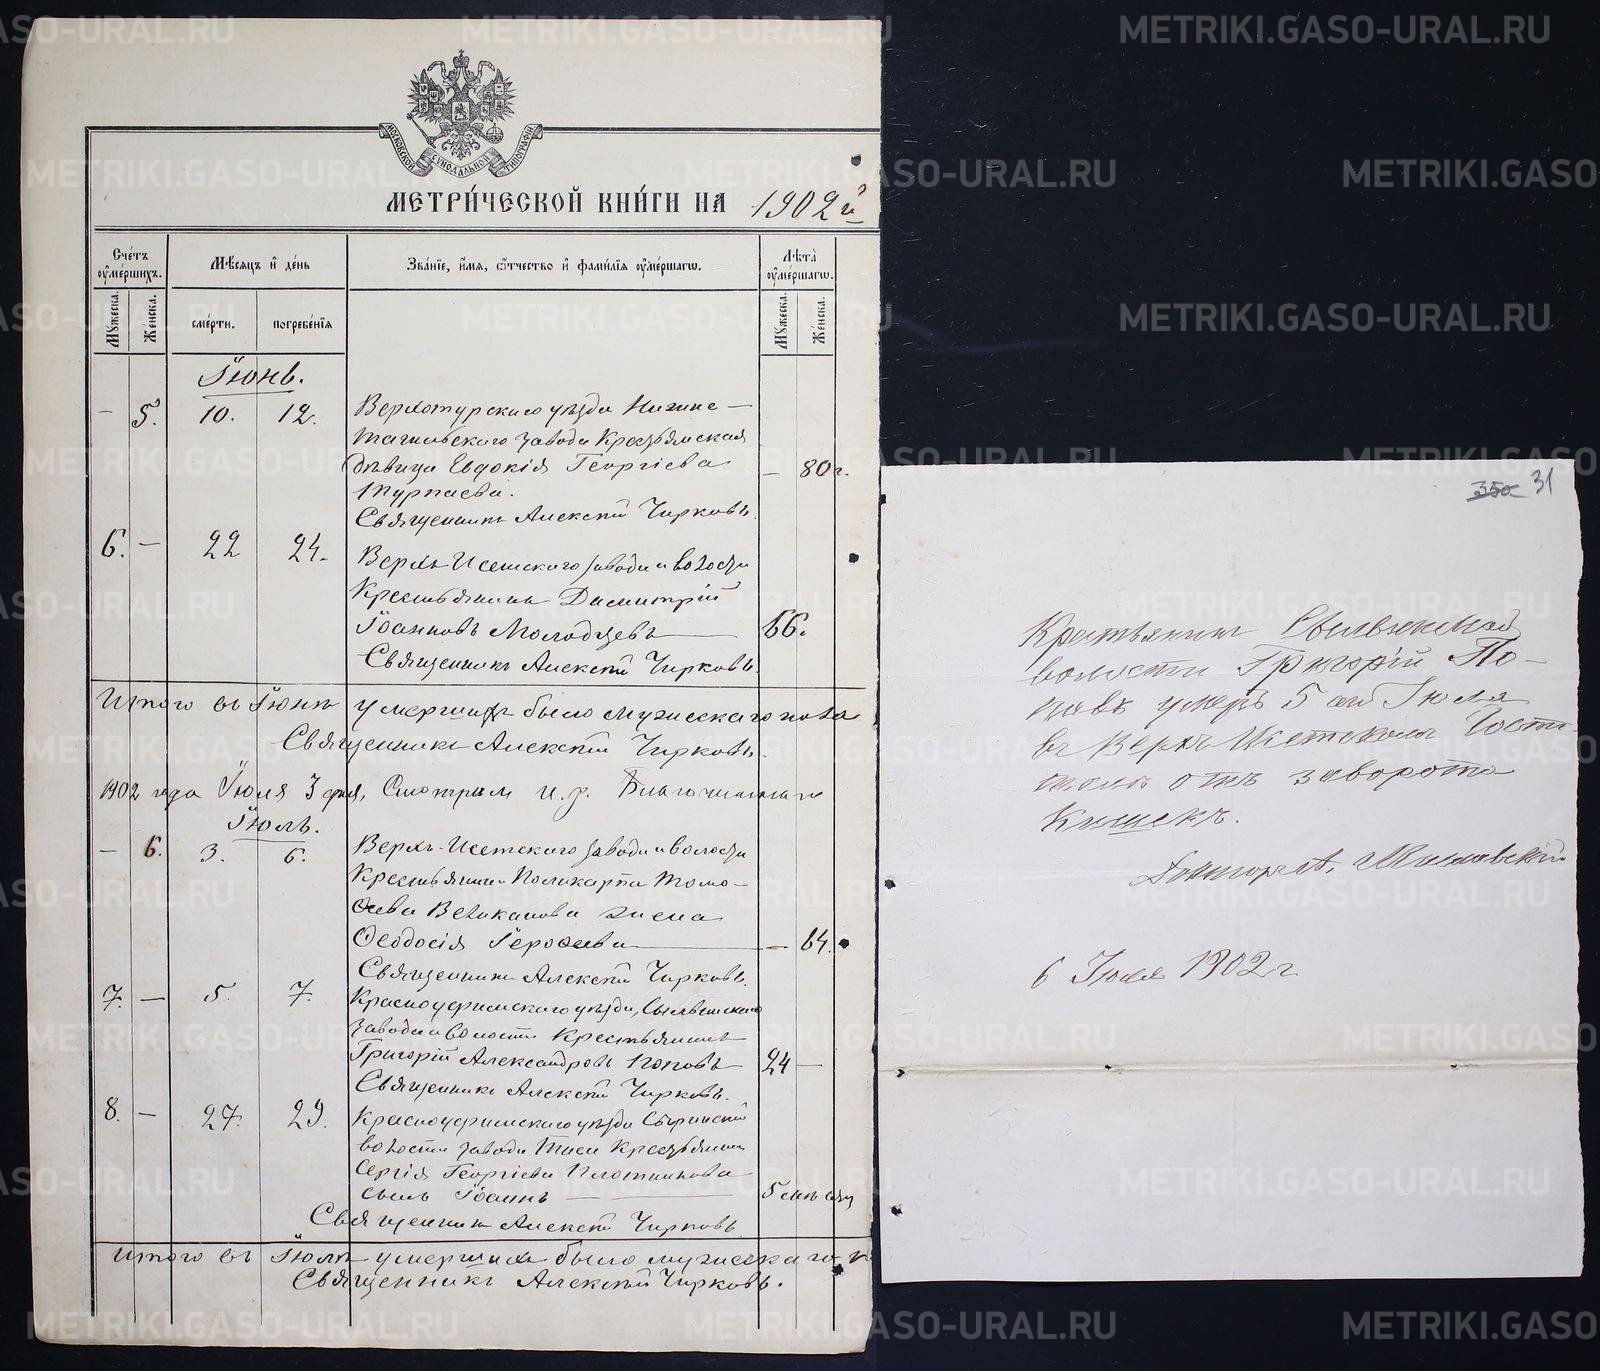 МОСКОВСКОЙ СУНОДАЛЬНОЙ ТИПОГРАФІИ
МЕТРИ́ЧЕСКОЙ КНИ́ГИ НА 1902 й
Сче́тъ ᲂу҆ме́ршихъ.
Мѣ́сяцъ и҆ де́нь
Зва́нїе, и҆́мя, ѻ҆́тчество и҆ фами́лїя ᲂу҆ме́ршагѡ.
Лѣ́та ᲂу҆ме́ршагѡ.
Мꙋ́жеска.
Же́нска.
сме́рти.
погребе́нїя
Мꙋ́жеска.
Же́нска.
Іюнь.
— 5. 10. 12. Верхотурскаго уѣзда Нижне-
Тагильскаго завода Крестьянская
дѣвица Евдокія Георгіева — 80 г.
Турпаева.
Священникъ Алексій Чирковъ.
6. — 22 24. Верхъ-Исетскаго завода и волости
Крестьянинъ Димитрій
Іоанновъ Молодцевъ 66.
Священникъ Алексій Чирковъ.
Итого въ Іюнѣ умершихъ было мужескаго пола
Священникъ Алексій Чирковъ.
1902 года Іюля 3 дня, Смотрѣлъ и. д. Благочиннаго
Іюль.
— 6. 3. 6. Верхъ-Исетскаго завода и волости
Крестьянина Поликарпа Тимо-
ѳеева Великанова жена
Ѳеодосія Іероѳеева — 64.
Священникъ Алексій Чирковъ.
7. — 5. 7. Красноуфимскаго уѣзда, Сылвенскаго
завода и волости Крестьянинъ
Григорій Александровъ Поповъ 24 —
Священникъ Алексій Чирковъ.
8. — 27. 29. Красноуфимскаго уѣзда
волости завода Крестьянина
Сергія Георгіева Плотникова
сынъ Іоаннъ 5 мѣсяц
Священникъ Алексій Чирковъ
Итого въ Іюлѣ умершихъ было мужескаго п
Священникъ Алексій Чирковъ.
350 31
Крестьянин Сылвенской
волости Григорій По-
повъ умеръ 5 го Іюля
въ Верхъ Исетском Госпи-
талѣ отъ заворота
Кишекъ.
Докторъ А.
6 Іюля 1902 г
METRIKI.GASO-URAL.RU